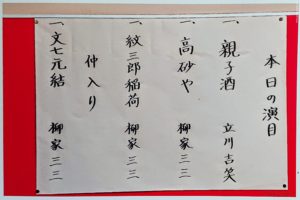 本日の演目
一、親子酒 立川吉笑
一、高砂や 柳家三三
一、紋三郎稲荷 柳家三三
仲入り
一、文七元結 柳家三三